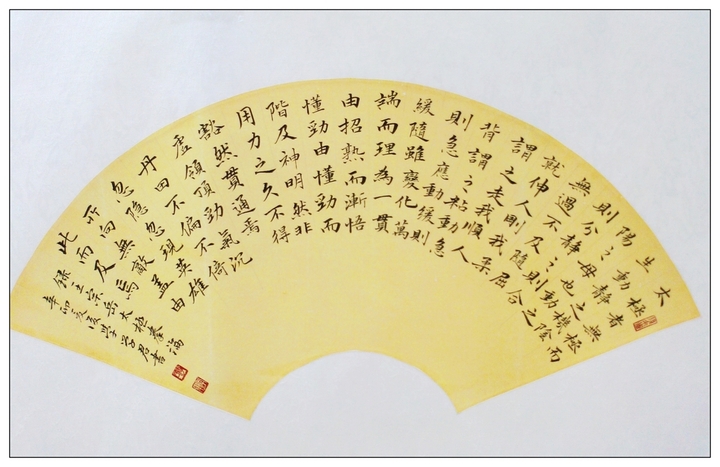 太極者無極而
生動靜之機陰
陽之母也動之
則分靜之則合
無過不及隨屈
就伸人剛我柔
謂之走我順人
背謂之粘動急
則急應動緩則
緩隨雖變化萬
端而理為一貫
由招熟而漸悟
懂勁由懂勁而
階及神明然非
用力之久不得
豁然貫通焉
虛領頂勁氣沉
丹田不偏不倚
忽隱忽現英雄
所向無敵蓋由
此而及焉
錄王宗岳太極拳論
辛卯
君書